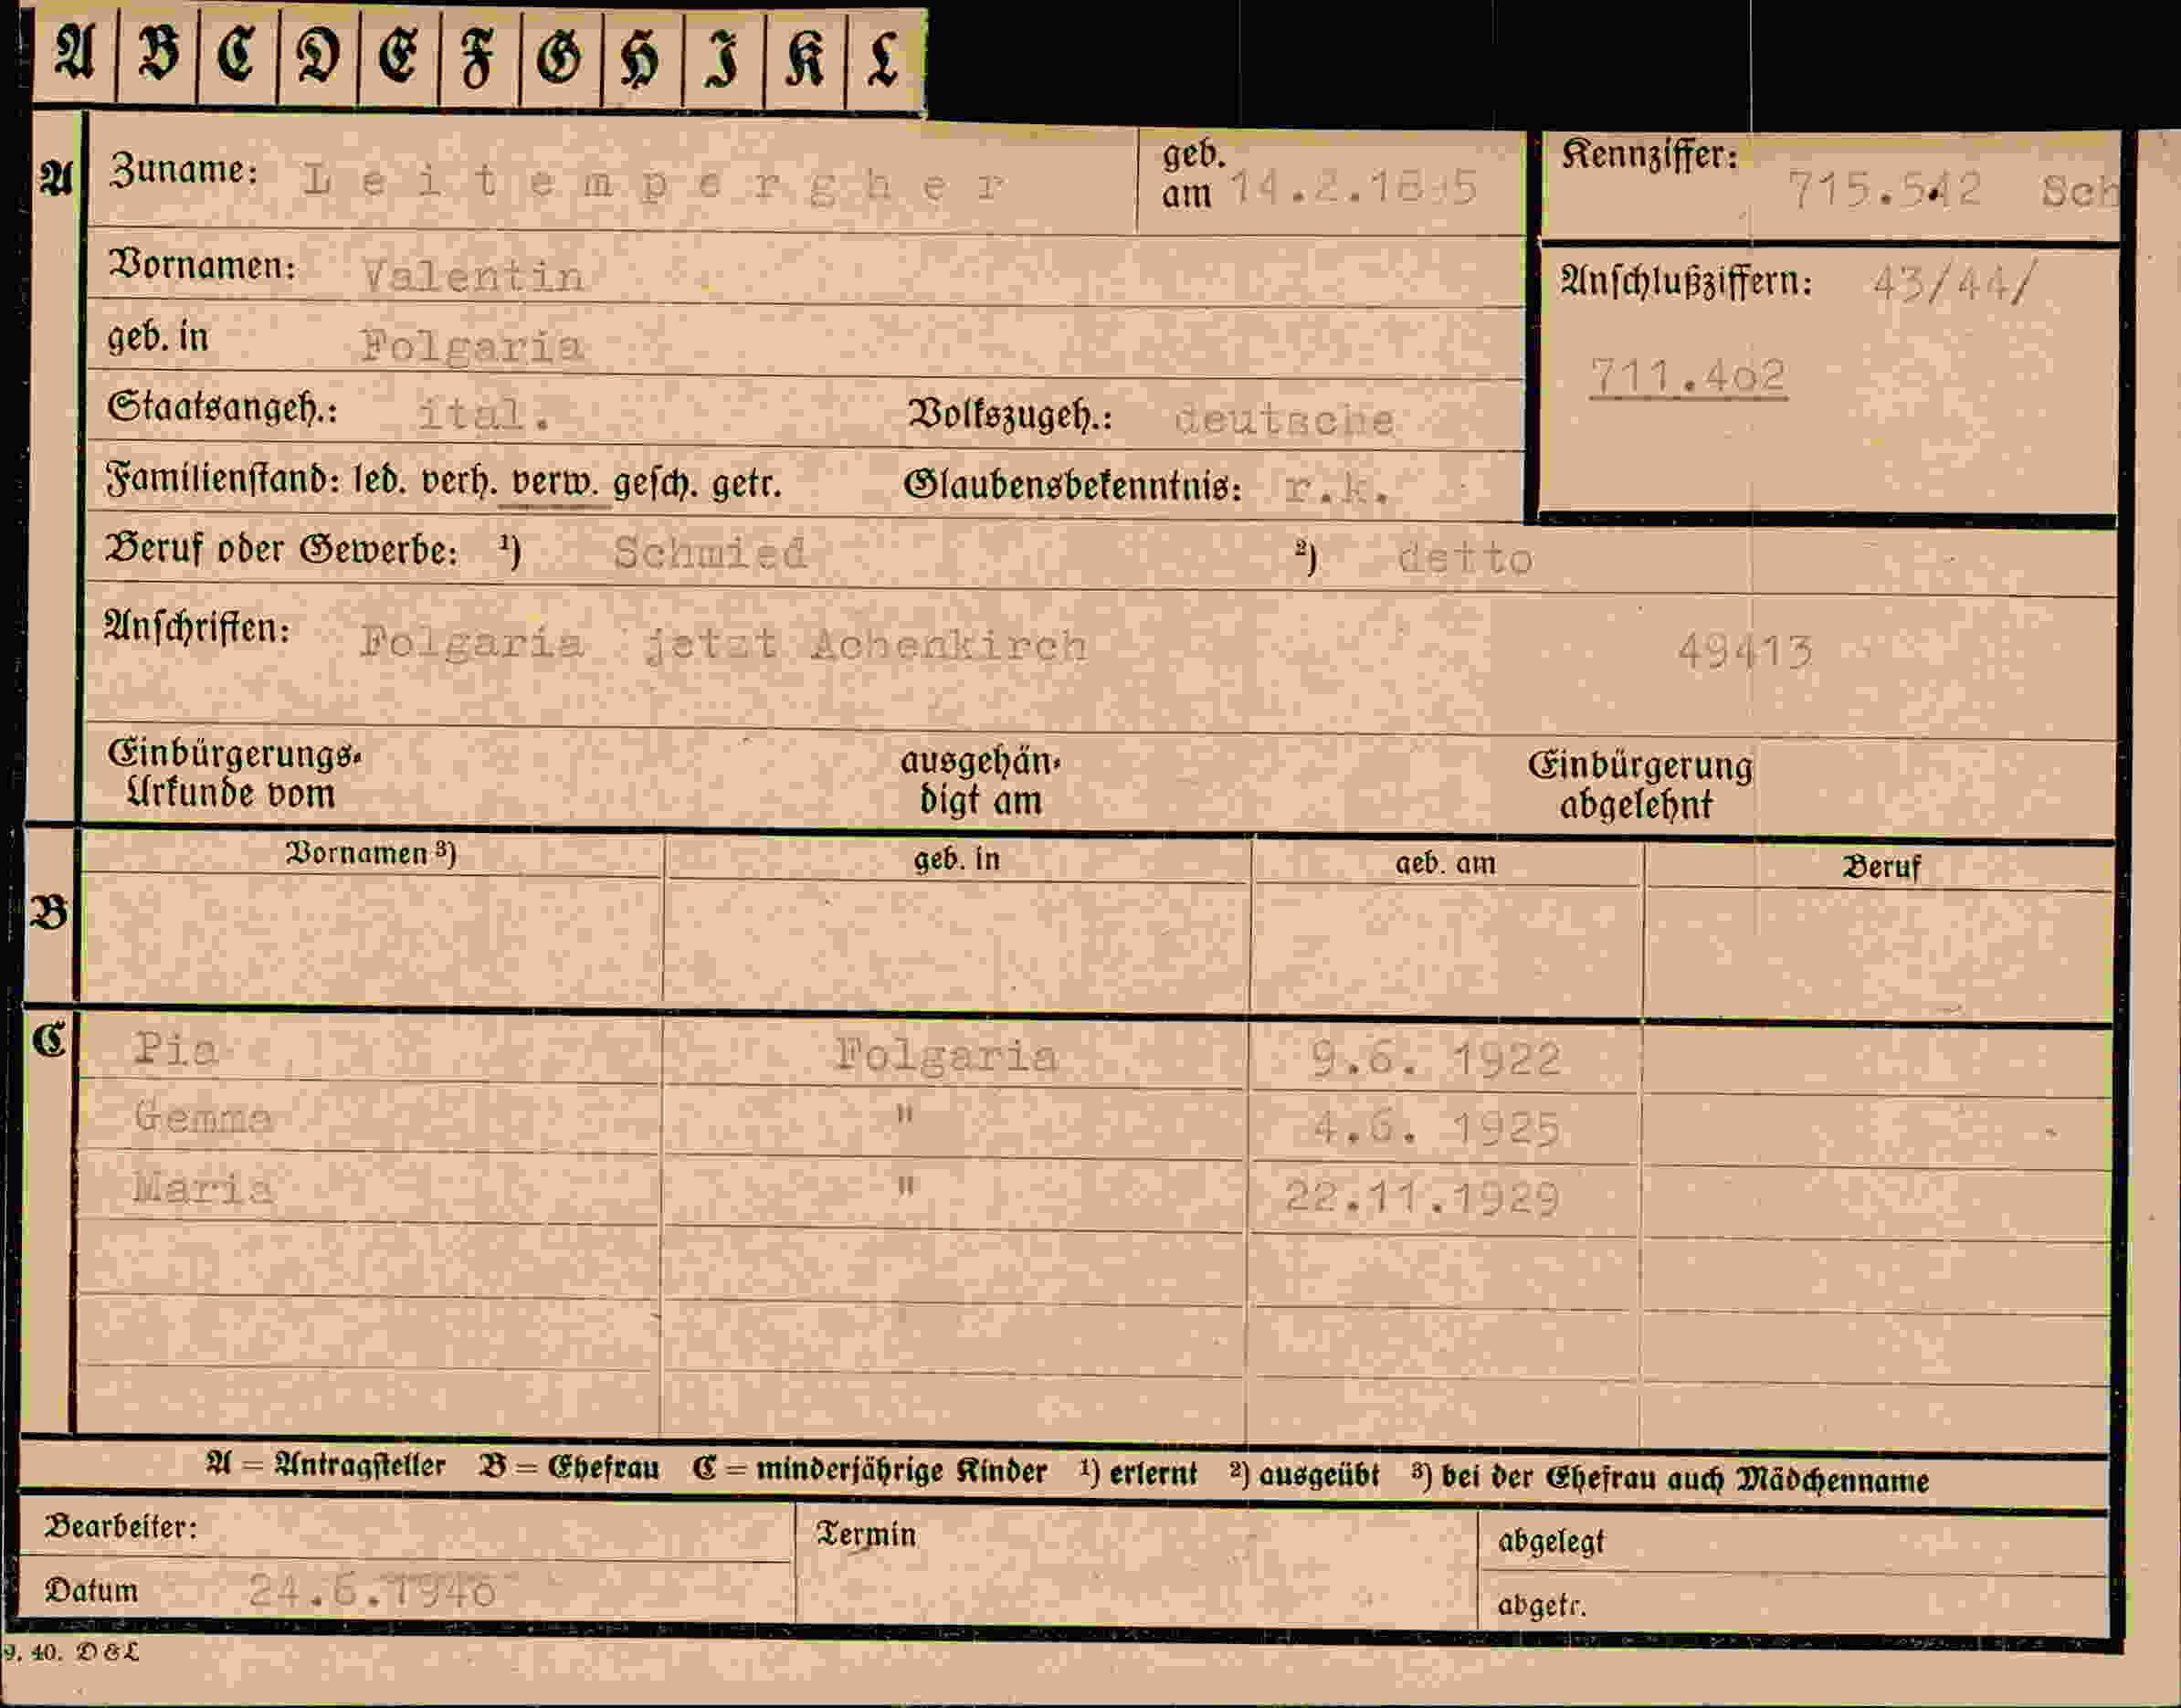 A B C D E F G H I K L
A Zuname: Leitempergher geb. am Kennziffer: 715.542 Sch
Vornamen: Valentin
Anschlußziffern: 43/44/
geb. in Folgaria
711.4o2
Staatsangeh.: ital. Volkszugeh.: deutsche
Familienstand: led. verh. verw. gesch. getr. Glaubensbekenntnis: r.k.
Beruf oder Gewerbe: 1) Schmied 2) detto
Anschriften: Folgaria jetzt Achenkirch 49413
Einbürgerungs- ausgehän- Einbürgerung
Urkunde vom digt am abgelehnt
Vornamen 3) geb. in geb. am Beruf
B
C Pia Folgaria 9.6. 1922
Gemma " 4.6. 1925
Maria " 22.11.1929
A = Antragsteller B = Ehefrau C = minderjährige Kinder 1) erlernt 2) ausgeübt 3) bei der Ehefrau auch Mädchenname
Bearbeiter: Termin abgelegt
Datum 24.6.194o abgetr.
9. 40. D&L